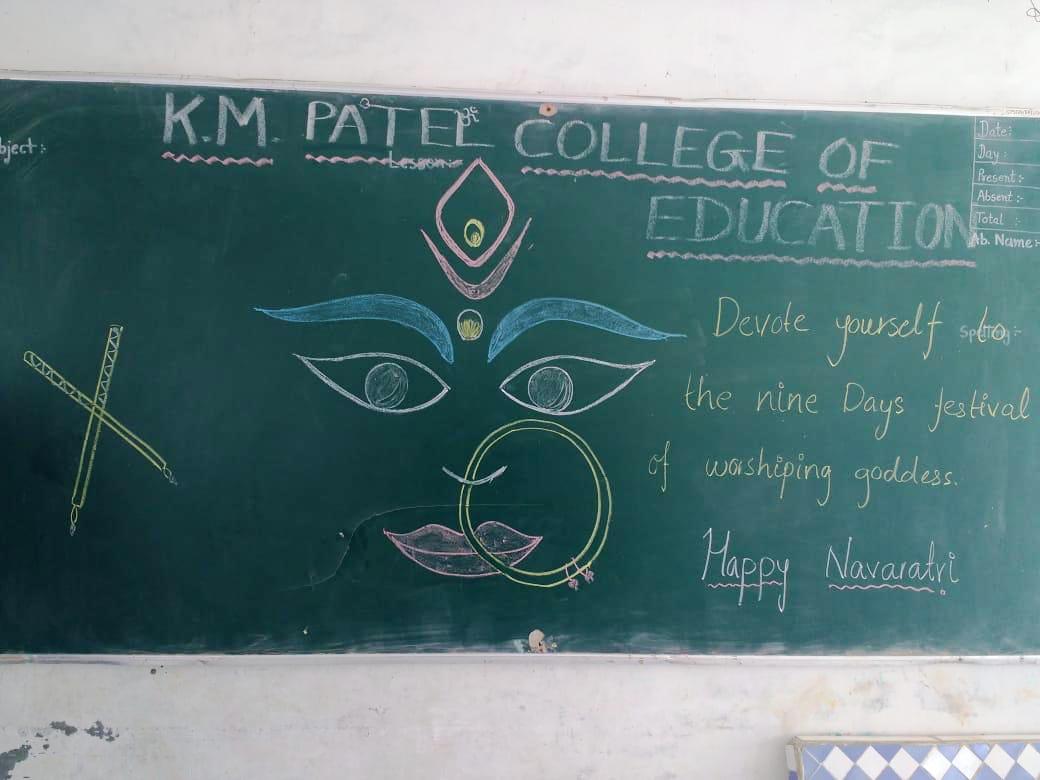 K.M. PATEL COLLEGE OF
EDUCATION
bject :-
Lesson :-
Date:
Day :
Present :-
Absent :-
Total :
Ab. Name:-
Spelling :-
Devote yourself to
the nine Days festival
of worshiping goddess.
Happy Navaratri